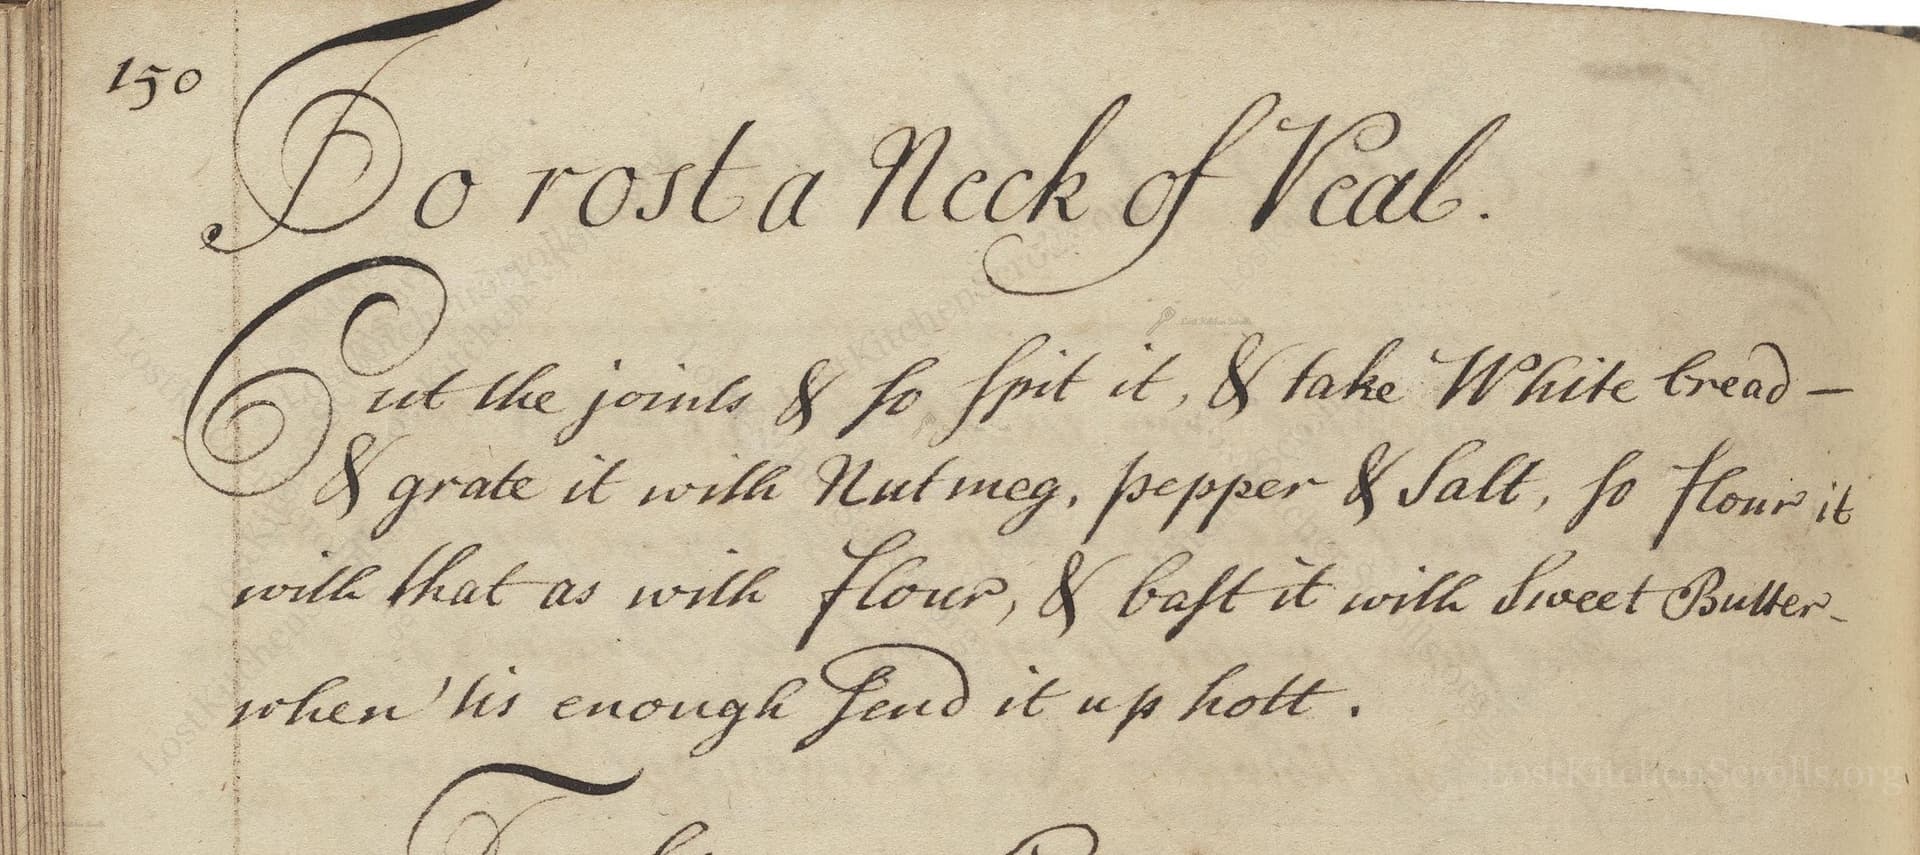 150
To rost a Neck of Veal.
Cut the joints & so spit it, & take White bread —
& grate it with Nutmeg, pepper & Salt, so flour it
with that as with flour, & bast it with Sweet Butter -
when 'tis enough send it up hott.
LostKitchenScrolls.org